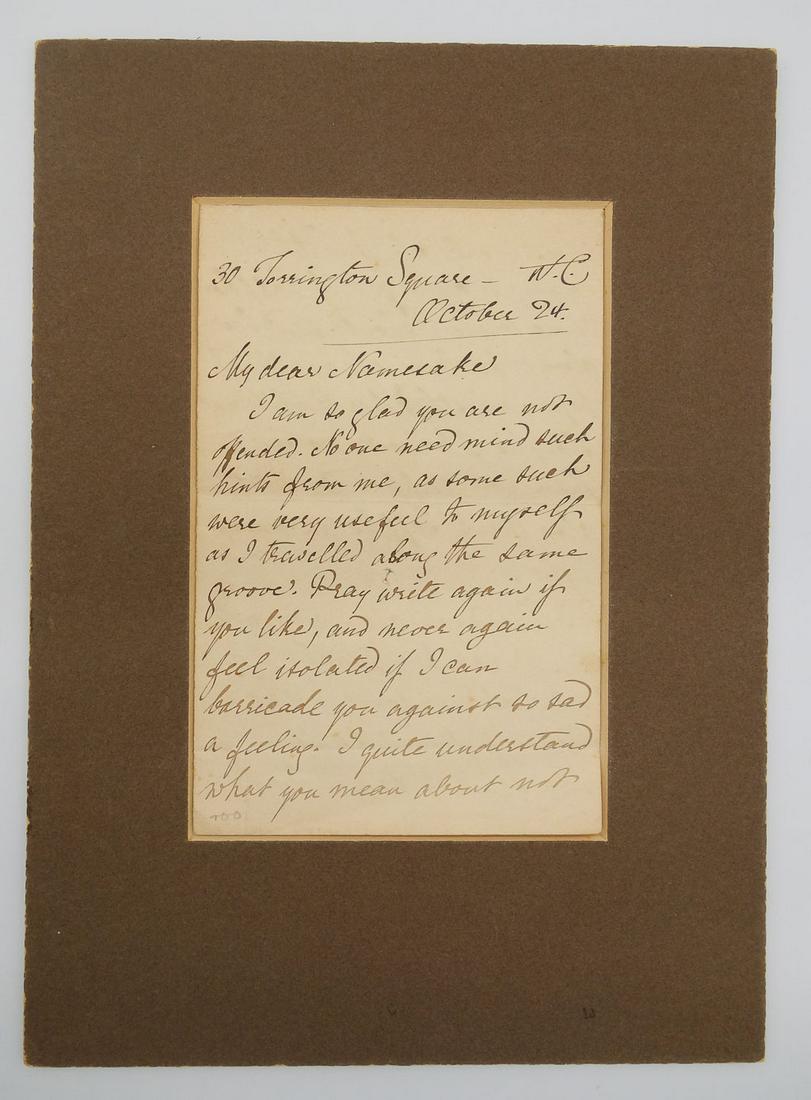 30 Torrington Square - W.C.
October 24.
My dear Namesake
I am so glad you are not
offended. No one need mind such
hints from me, as some such
were very useful to myself
as I travelled along the same
groove. Pray write again if
you like, and never again
feel isolated if I can
barricade you against so sad
a feeling. I quite understand
what you mean about not